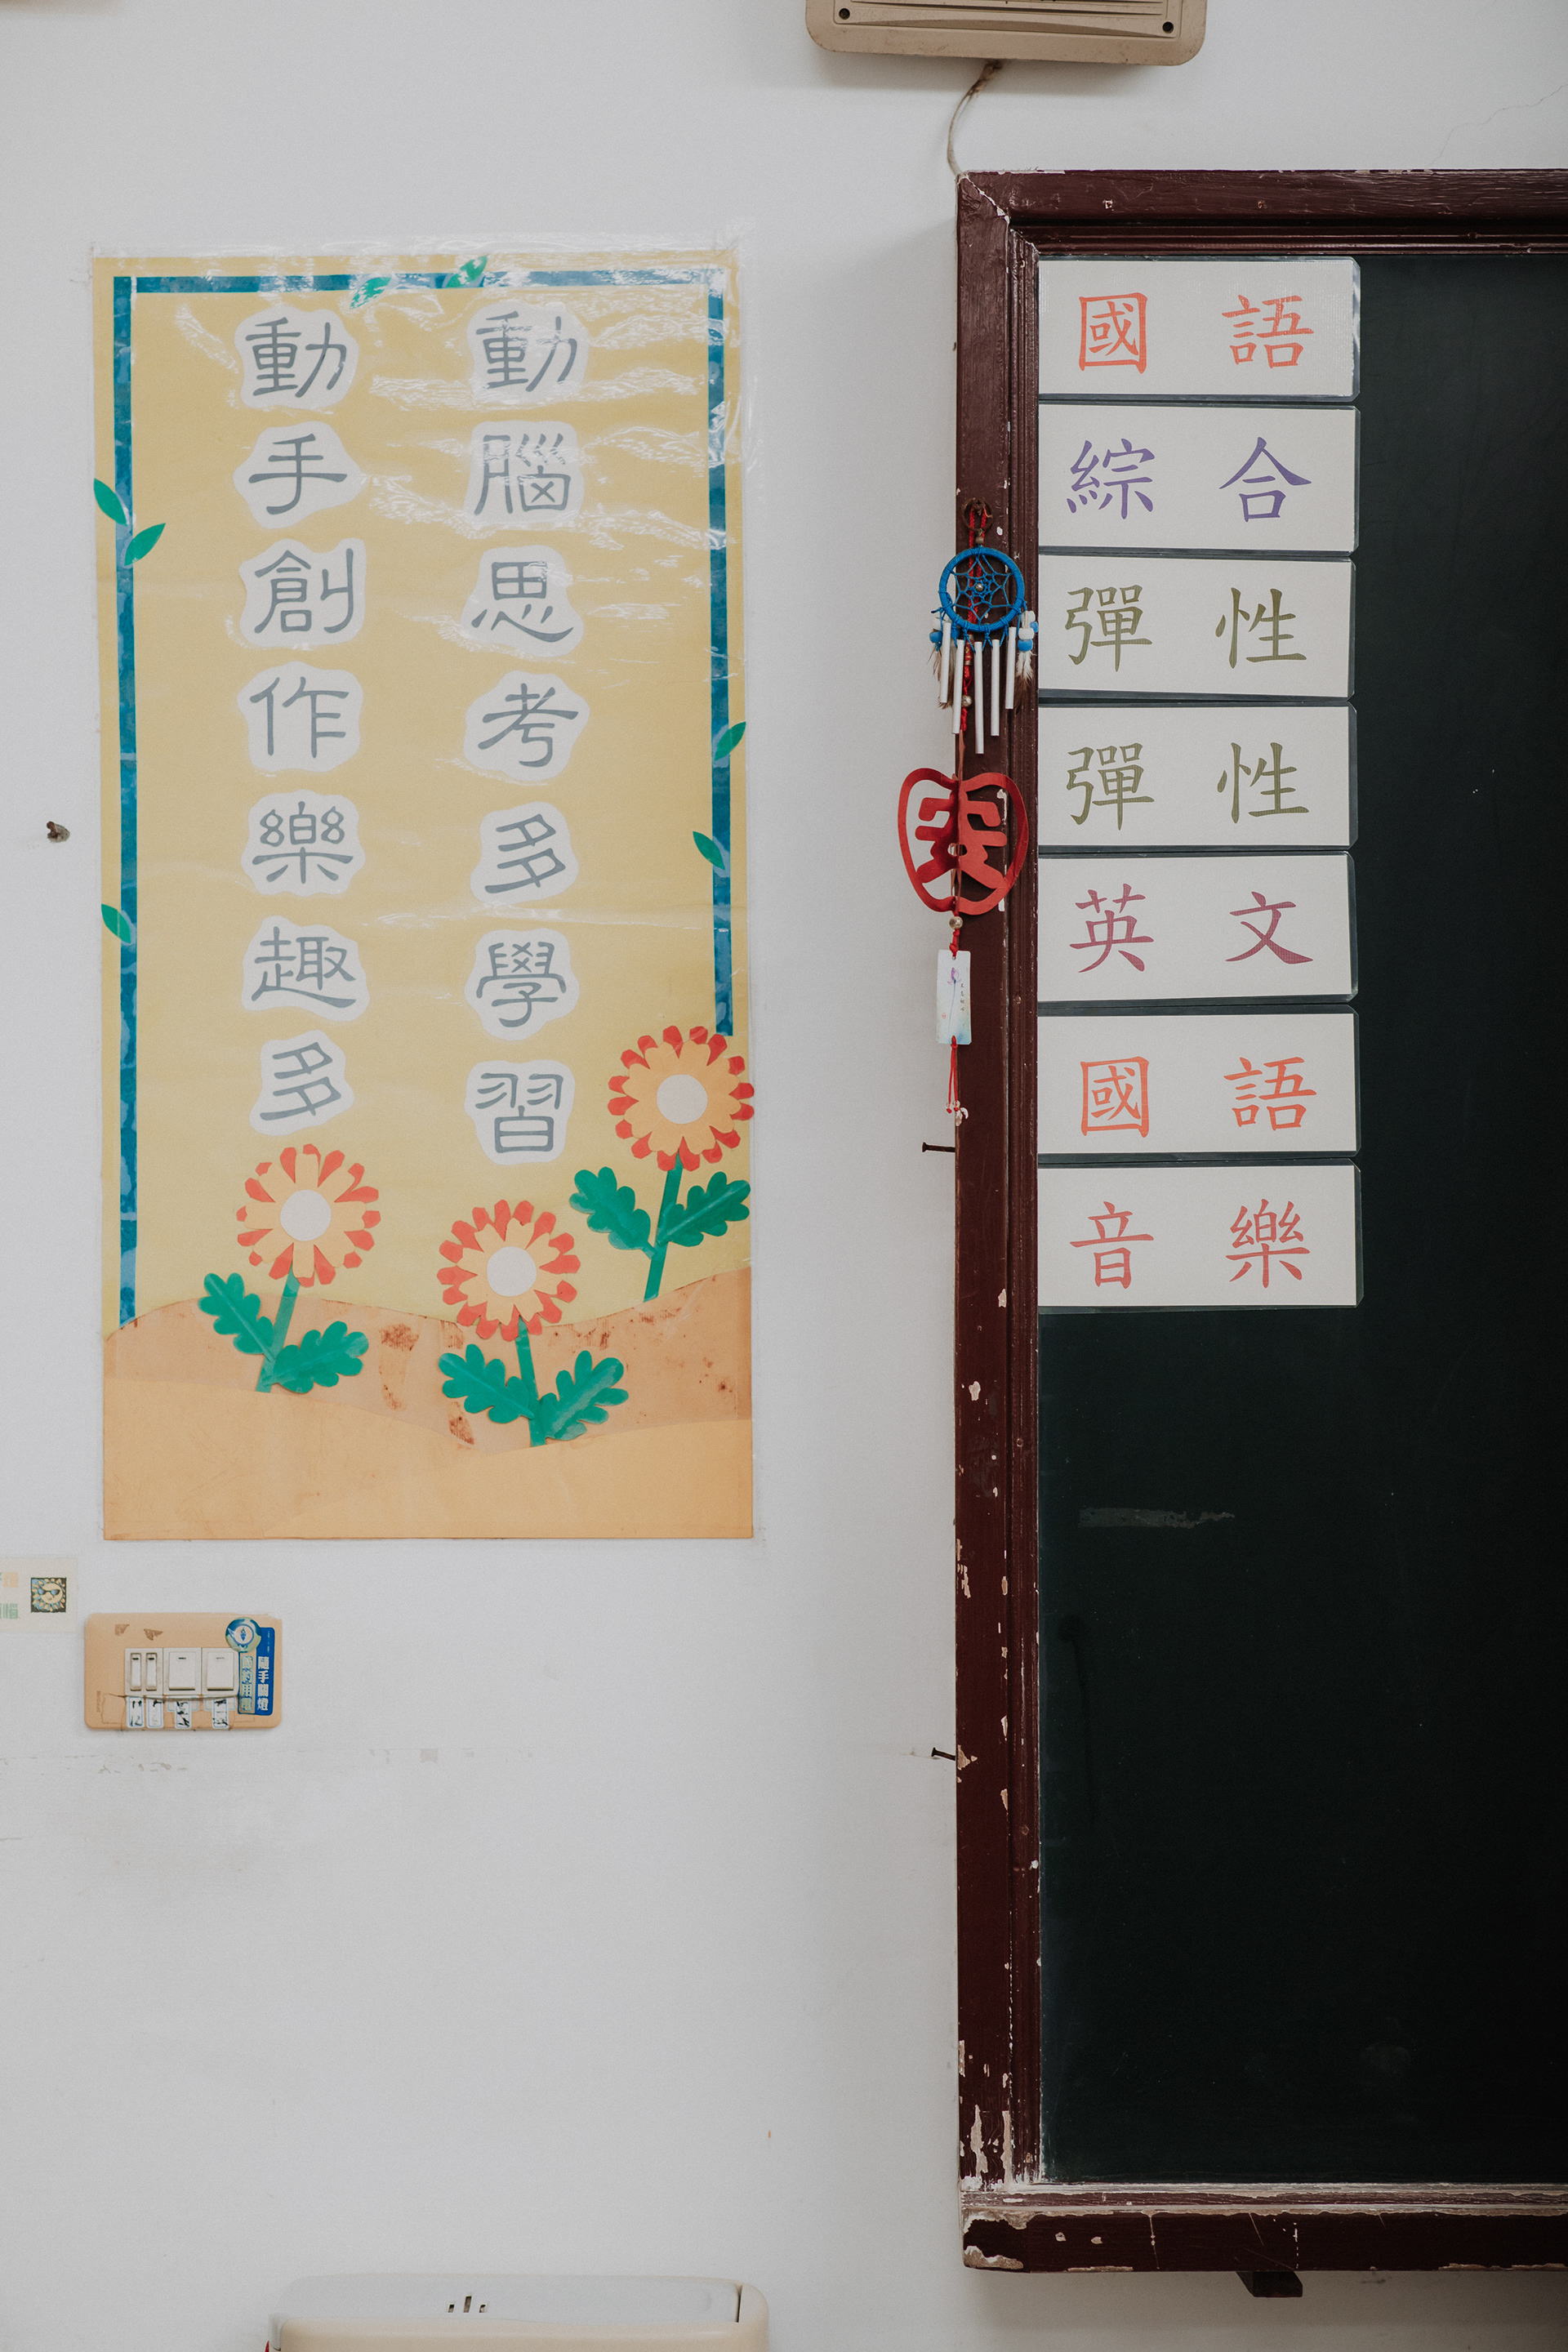 動腦思考多學習
動手創作樂趣多
國語
綜合
彈性
彈性
英文
國語
音樂
隨手關燈